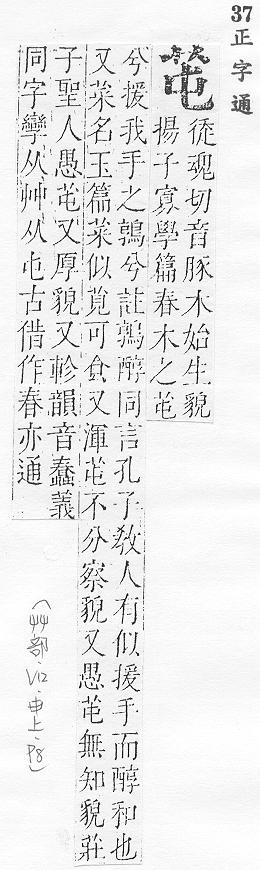 37正字通
芚
徒魂切音豚木始生貌
揚子寡學篇春木之芚
兮援我手之鶉兮註鶉醇同言孔子教人有似援手而醇和也
又菜名玉篇菜似莧可食又渾芚不分察貌又愚芚無知貌莊
子聖人愚芚又厚貌又軫韻音蠢義
同字孿从艸从屯古借作春亦通
(艸部·V12·申上·P8)